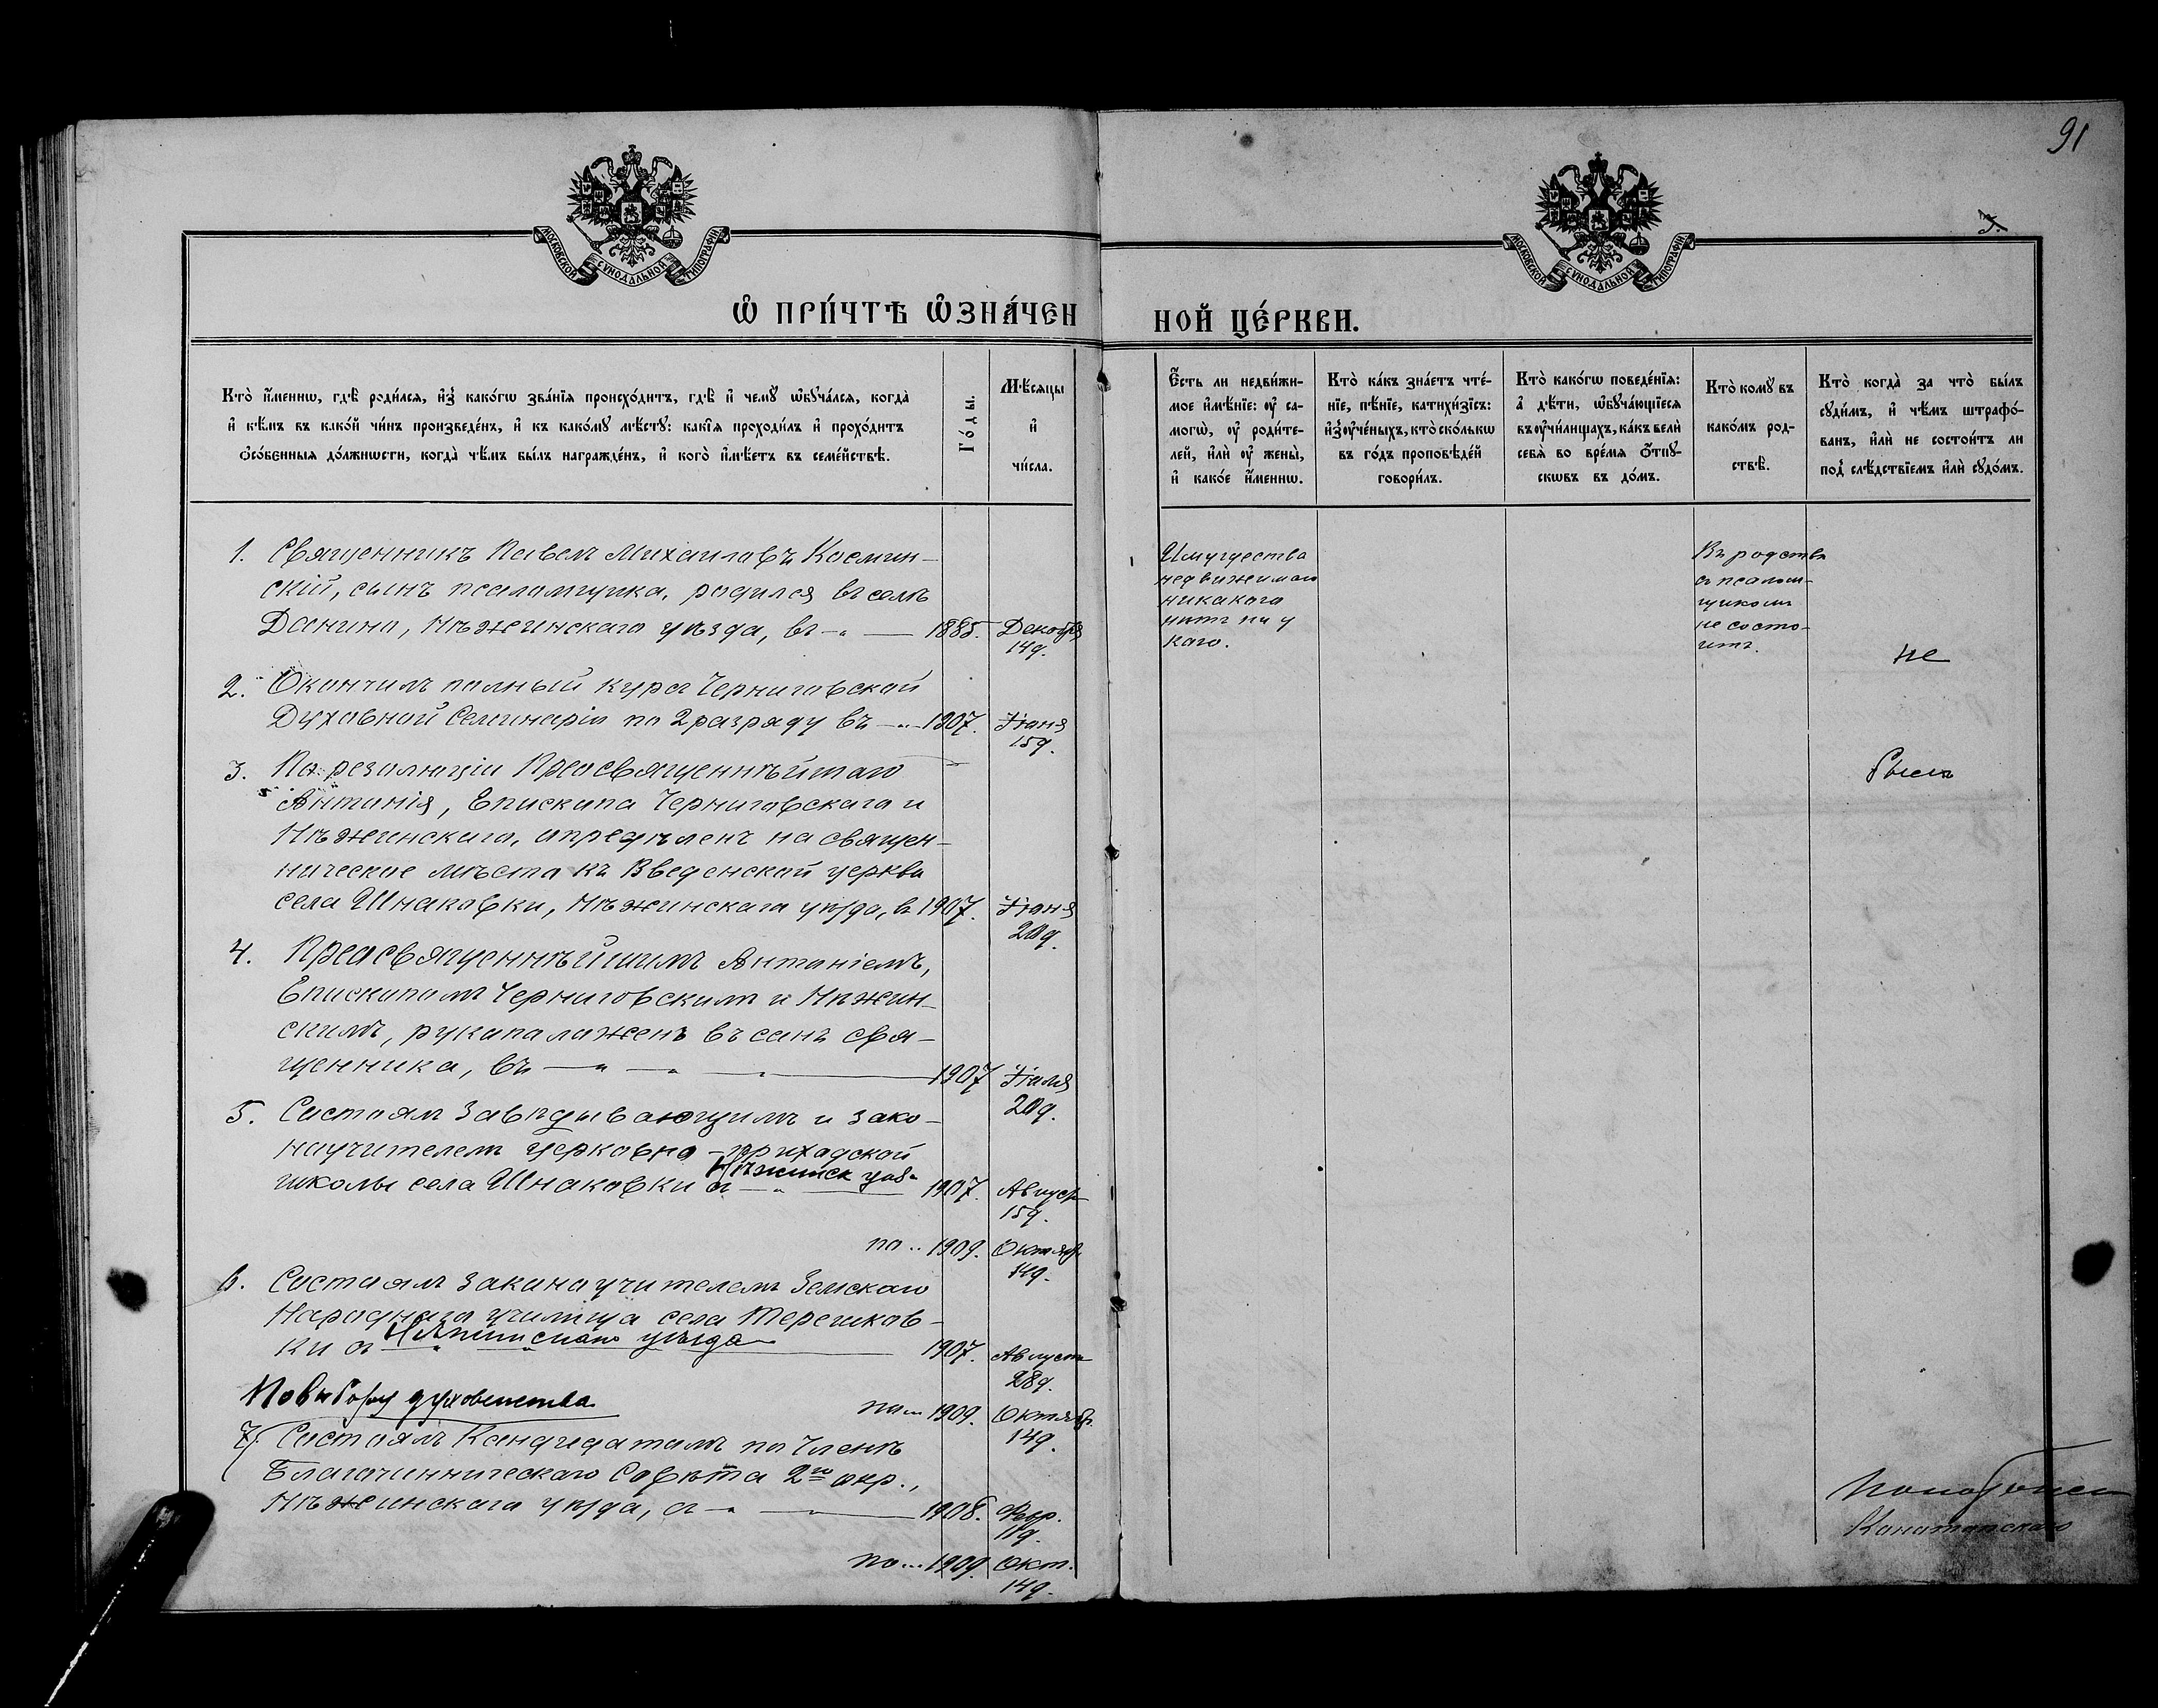 91
МОСКОВСКОЙ СѴНОДАЛЬНОЙ ТИПОГРАФІИ
МОСКОВСКОЙ СѴНОДАЛЬНОЙ ТИПОГРАФІИ
3.
Ѽ ПРИ́ЧТѢ ѼЗНА́ЧЕН НОЙ ЦЕ́РКВИ.
Кто̀ и҆́меннѡ, гдѣ̀ роди́лся, и҆з̾ како́гѡ зва́нїѧ происхо́дитъ, гдѣ̀ и҆ чемꙋ̀ ѡ҆бꙋча́лся, когда̀
и҆ кѣ́мъ въ како́й чи́нъ произведе́нъ, и҆ къ како́мꙋ мѣ́стꙋ: какі̑ѧ проходи́лъ и҆ прохо́дитъ
ѻ҆со́бенныѧ до́лжнѡсти, когда̀ чѣ́мъ бы́лъ награжде́нъ, и҆ кого̀ и҆мѣ́етъ въ семе́йствѣ.
Го́ды.
Мѣ́сяцы
и҆
чи́сла.
Є҆́сть ли недви́жи-
мое и҆мѣ́нїе: ᲂу҆ са-
могѡ̀, ᲂу҆ роди́те-
лей, и҆лѝ ᲂу҆ жены̀,
и҆ како́е и҆́меннѡ.
Кто̀ ка́къ зна́етъ чте́-
нїе, пѣ́нїе, катихи́зїсъ:
и҆з̾ ᲂу҆че́ныхъ, кто̀ ско́лькѡ
въ го́дъ проповѣ́дей
говори́лъ.
Кто̀ како́гѡ поведе́нїѧ:
а҆ дѣ́ти, ѡ҆бꙋча́ющїесѧ
въ ᲂу҆чи́лищахъ, ка́къ велѝ
себѧ̀ во вре́мѧ ѿпꙋ-
скѡвъ въ до́мъ.
Кто̀ комꙋ̀ въ
како́мъ род-
ствѣ̀.
Кто̀ когда̀ за что̀ бы́лъ
сꙋди́мъ, и҆ чѣ́мъ штрафо́-
ванъ, и҆лѝ не состои́тъ ли
под̾ слѣ́дствїемъ и҆лѝ сꙋдо́мъ.
1. Священникъ Павелъ Михаиловъ Космин-
скій, сынъ псаломщика, родился въ селѣ
Данино, Нѣжинскаго уѣзда, въ — 1885. Декабря
14 д.
2. Окончилъ полный курсъ Черниговской
Духовной Семинаріи по 2 разряду въ — 1907. Іюня
15 д.
3. По резолюціи Преосвященнѣйшаго
Антонія, Епископа Черниговскаго и
Нѣжинскаго, опредѣленъ на священ-
ническое мѣсто къ Введенской церкви
села Шнаковки, Нѣжинскаго уѣзда, въ 1907. Іюня
20 д.
4. Преосвященнѣйшимъ Антоніемъ,
Епископомъ Черниговскимъ и Нѣжин-
скимъ, рукоположенъ въ санъ свя-
щенника, въ — 1907 Іюля
20 д.
5. Состоялъ завѣдывающимъ и зако-
ноучителемъ церковно-приходской
Нѣжинск уѣз.
школы села Шнаковки съ — 1907. Август
15 д.
по .. 1909. Октябр.
14 д.
6. Состоялъ законоучителемъ Земскаго
Народнаго училища села Терешков-
ки съ Нѣжинскаго уѣзда 1907. Август
28 д.
По выбору духовенства
по ... 1909. Октябр.
14 д.
7. Состоялъ Кандидатомъ по Членѣ
Благочинническаго Совѣта 2го окр.,
Нѣжинскаго уѣзда, съ — 1908. Февр.
11 д.
по ... 1909. Окт.
14 д.
Имущества
недвижимаго
никакого
нѣтъ ни у
кого.
Въ родствѣ
съ псалом-
щикомъ
не состо-
итъ.
не
былъ